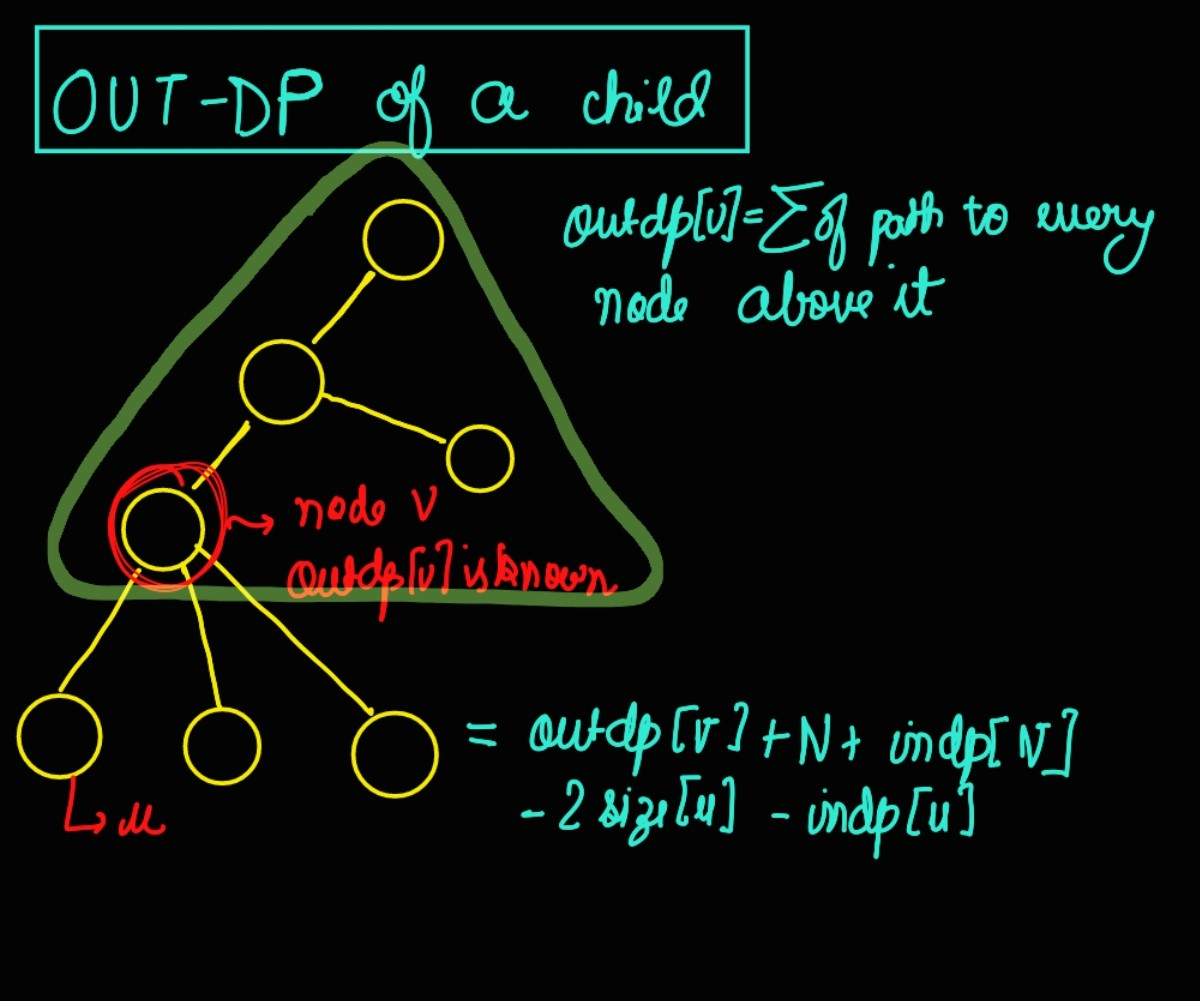 OUT-DP of a child
outdp[v]=∑ of path to every
node above it
node v
outdp[v] is known
= outdp[v]+N+ indp[N]
- 2 size[u] - indp[u]
u